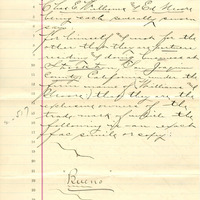 Chas E. Williams & Ed Moore
being each severally sworn
say
for himself and not for the
other that they are partners
residing & doing business at
Stockton San Joaquin
County California under the
firm name of Williams &
Moore; that they are the
exclusive owners of the
trade mark of which the
following is an exact
fac simile or copy:
"Bueno"